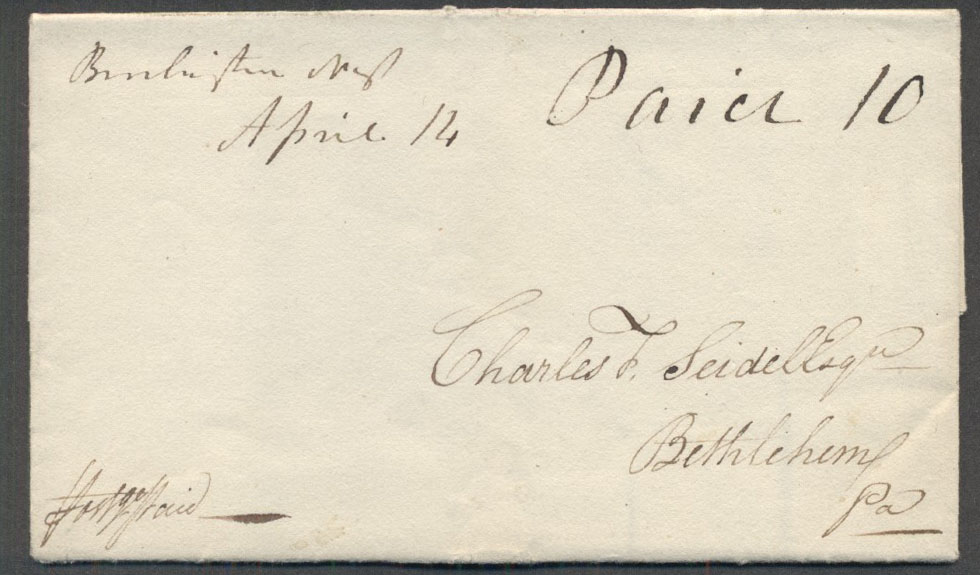 Burlington
April 14
Paid 10
Charles F. Seidel Esqre
Bethlehem
Pa
Postge Paid